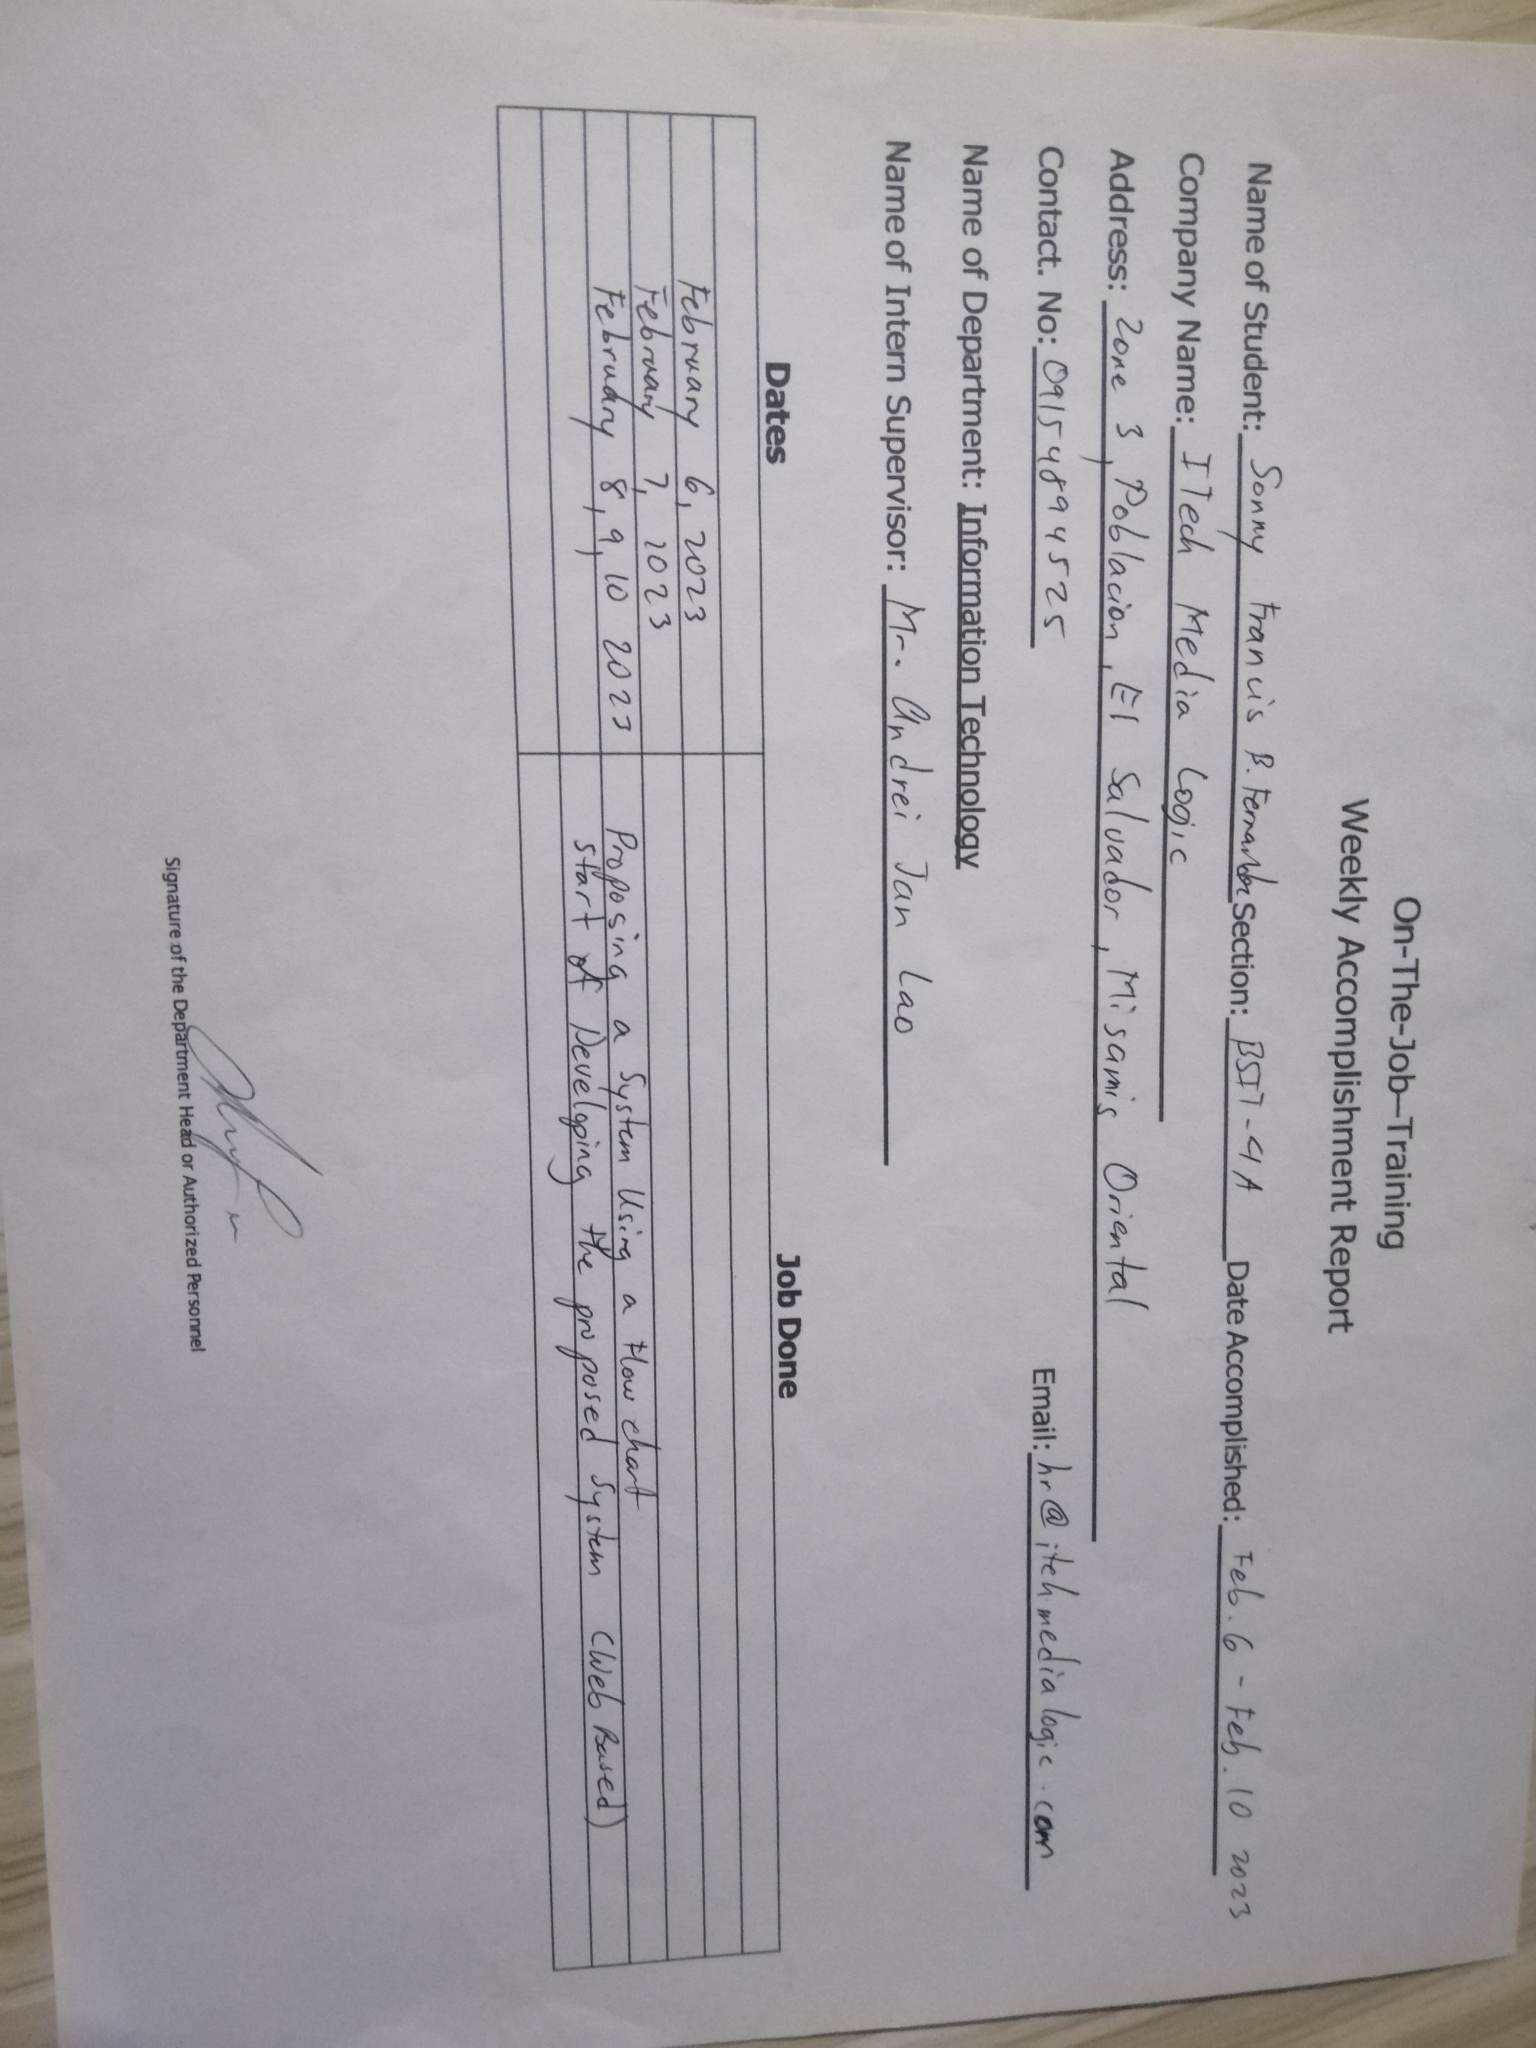 On-The-Job-Training
Weekly Accomplishment Report
Name of Student: Sonny Francis B. Fernandez Section: BSIT-4A Date Accomplished: Feb. 6 - Feb. 10 2023
Company Name: ITech Media Logic
Address: Zone 3, Poblacion, El Salvador, Misamis Oriental
Contact. No: 09154894525 Email: hr@itehmedialogic.com
Name of Department: Information Technology
Name of Intern Supervisor: Mr. Andrei Jan Lao
Dates Job Done
February 6, 2023
February 7, 2023 Proposing a System Using a Flow chart
February 8, 9, 10 2023 Start of Developing the proposed System (Web Based)
Signature of the Department Head or Authorized Personnel